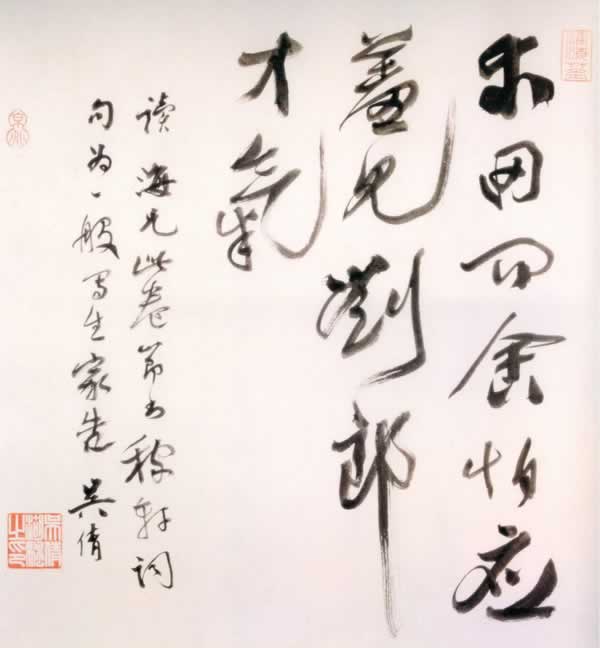 求田问舍怕应
羞见劉郎
才氣
读海兄此卷节书稼轩词
句为一般写生家告 吴倩